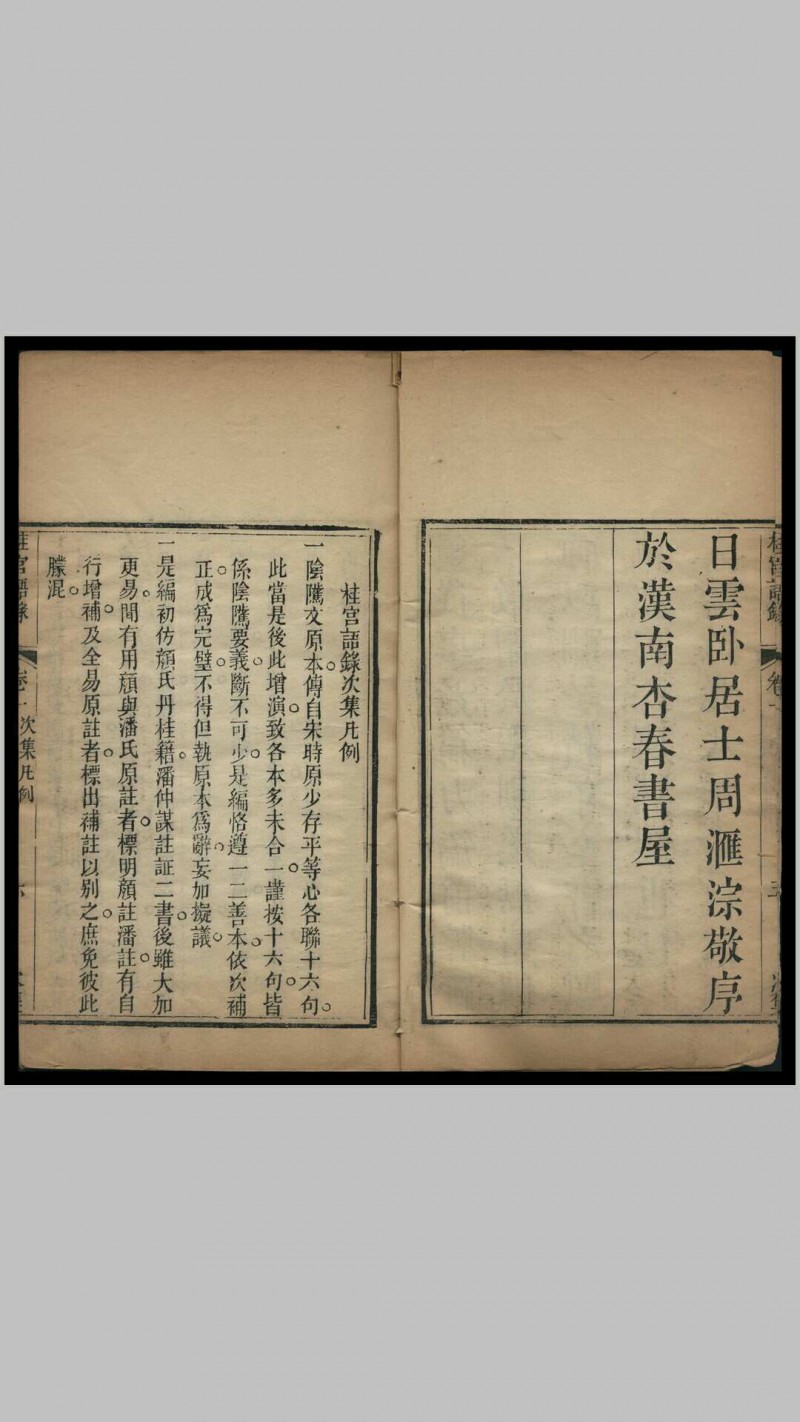 日雲卧居士周滙淙敬序
於漢南杏春書屋
桂宮語錄次集凡例
一陰隲文原本。傳自宋時原少存平等心各聯十六句。
此當是後此增演。致各本多未合一。謹按十六句。皆
係陰隲要義。斷不可少。是編恪遵一二善本。依次補
正。成爲完璧。不得但執原本爲辭。妄加擬議。
一是編初仿顏氏丹桂籍。潘仲謀註証二書。後雖大加
更易。間有用顏與潘氏原註者。標明顏註潘註。有自
行增補。及全易原註者。標出補註以别之。庶免彼此
朦混。
桂宮語錄
卷一
桂宮語錄
卷一
次集凡例
六